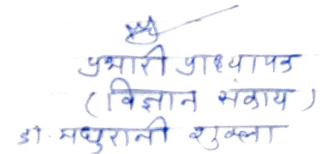 प्रभारी प्राध्यापक
(विज्ञान संकाय)
डॉ. मधुरानी शुक्ला